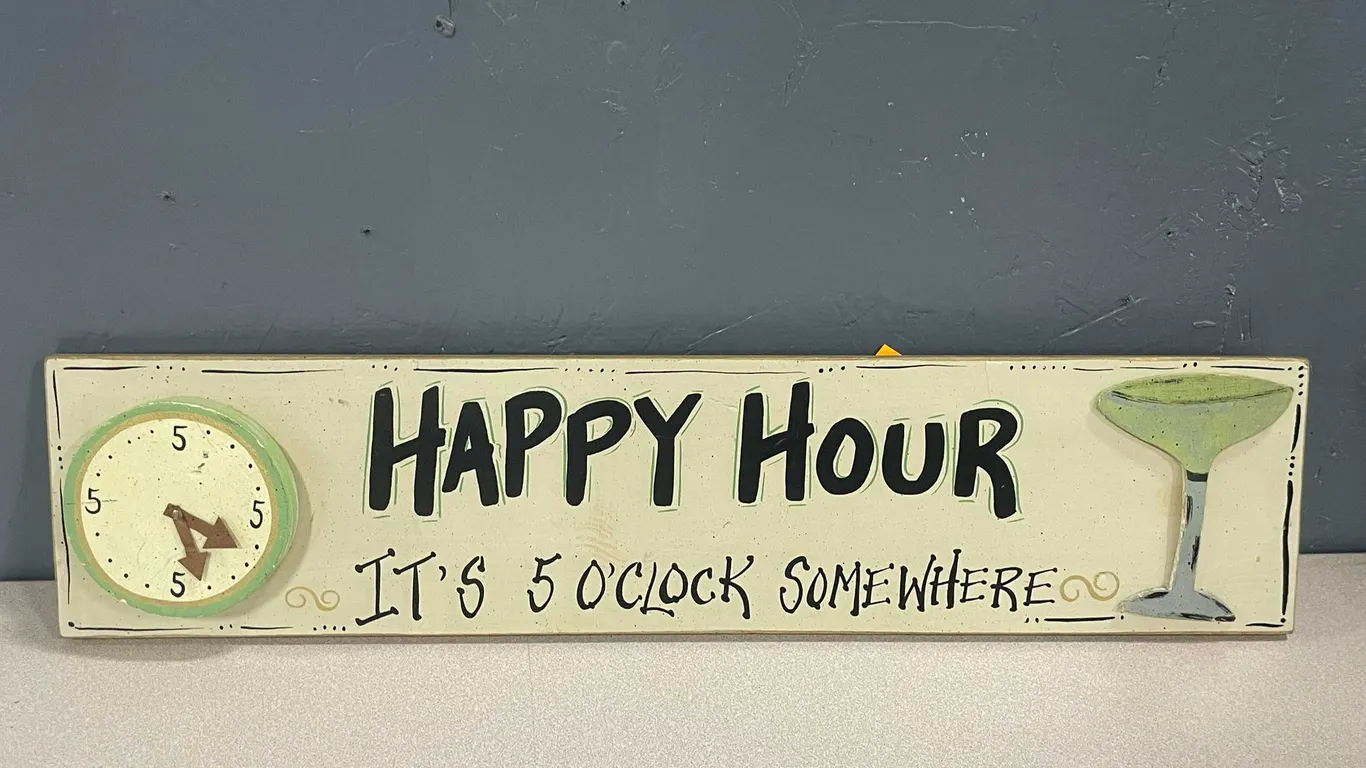 HAPPY HOUR
IT'S 5 O'CLOCK SOMEWHERE
5
5 5
5